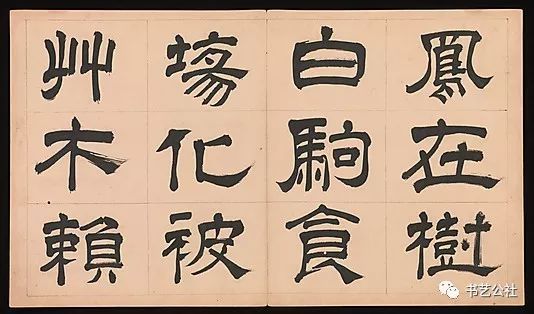 鳳在樹
白駒食
場化被
艸木賴
书艺公社